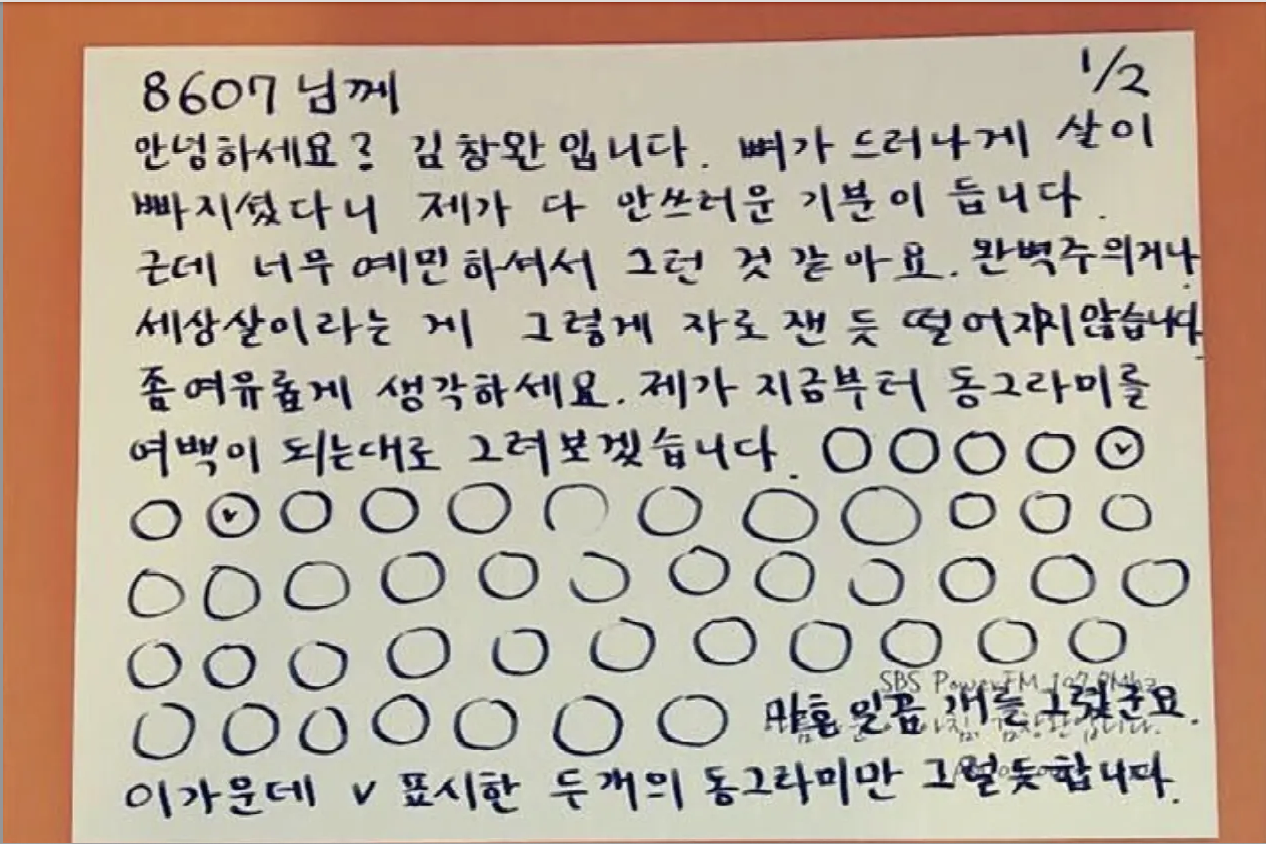 8607님께
1/2
안녕하세요? 김창완입니다. 뼈가 드러나게 살이
빠지셨다니 제가 다 안쓰러운 기분이 듭니다.
근데 너무 예민하셔서 그런 것 같아요. 완벽주의거나
세상살이라는 게 그렇게 자로 잰 듯 떨어지지 않습니다
좀 여유롭게 생각하세요. 제가 지금부터 동그라미를
여백이 되는대로 그려보겠습니다.
SBS PowerFM 107.7Mhz
마흔 일곱 개를 그렸군요.
아침, 김창완입니다.
이가운데 v 표시한 두개의 동그라미만 그럴듯합니다.